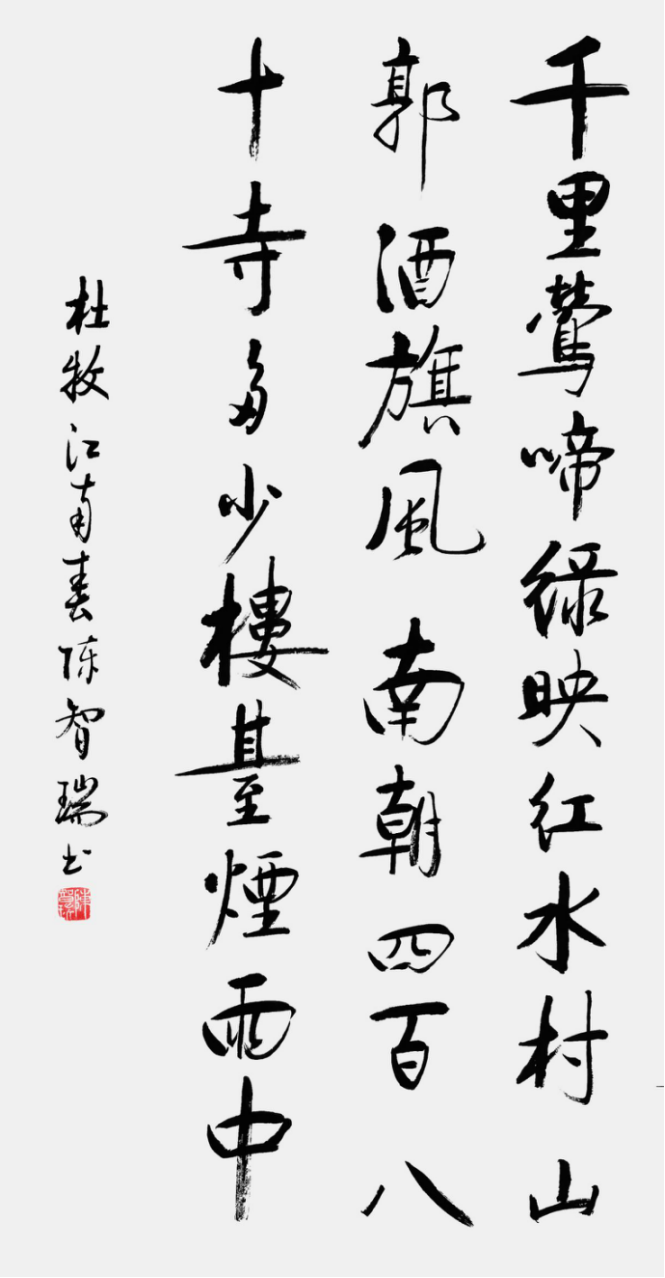 千里鶯啼綠映红水村山
郭酒旗風南朝四百八
十寺多少樓臺煙雨中
杜牧江南春陈智瑞书